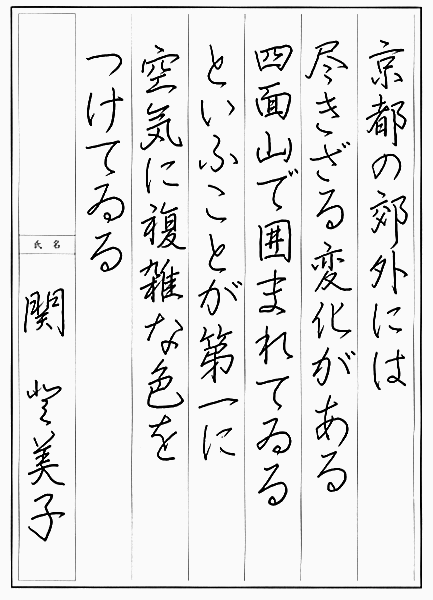 京都の郊外には
尽きざる変化がある
四面山で囲まれてゐる
といふことが第一に
空気に複雑な色を
つけてゐる
氏名
関 登美子